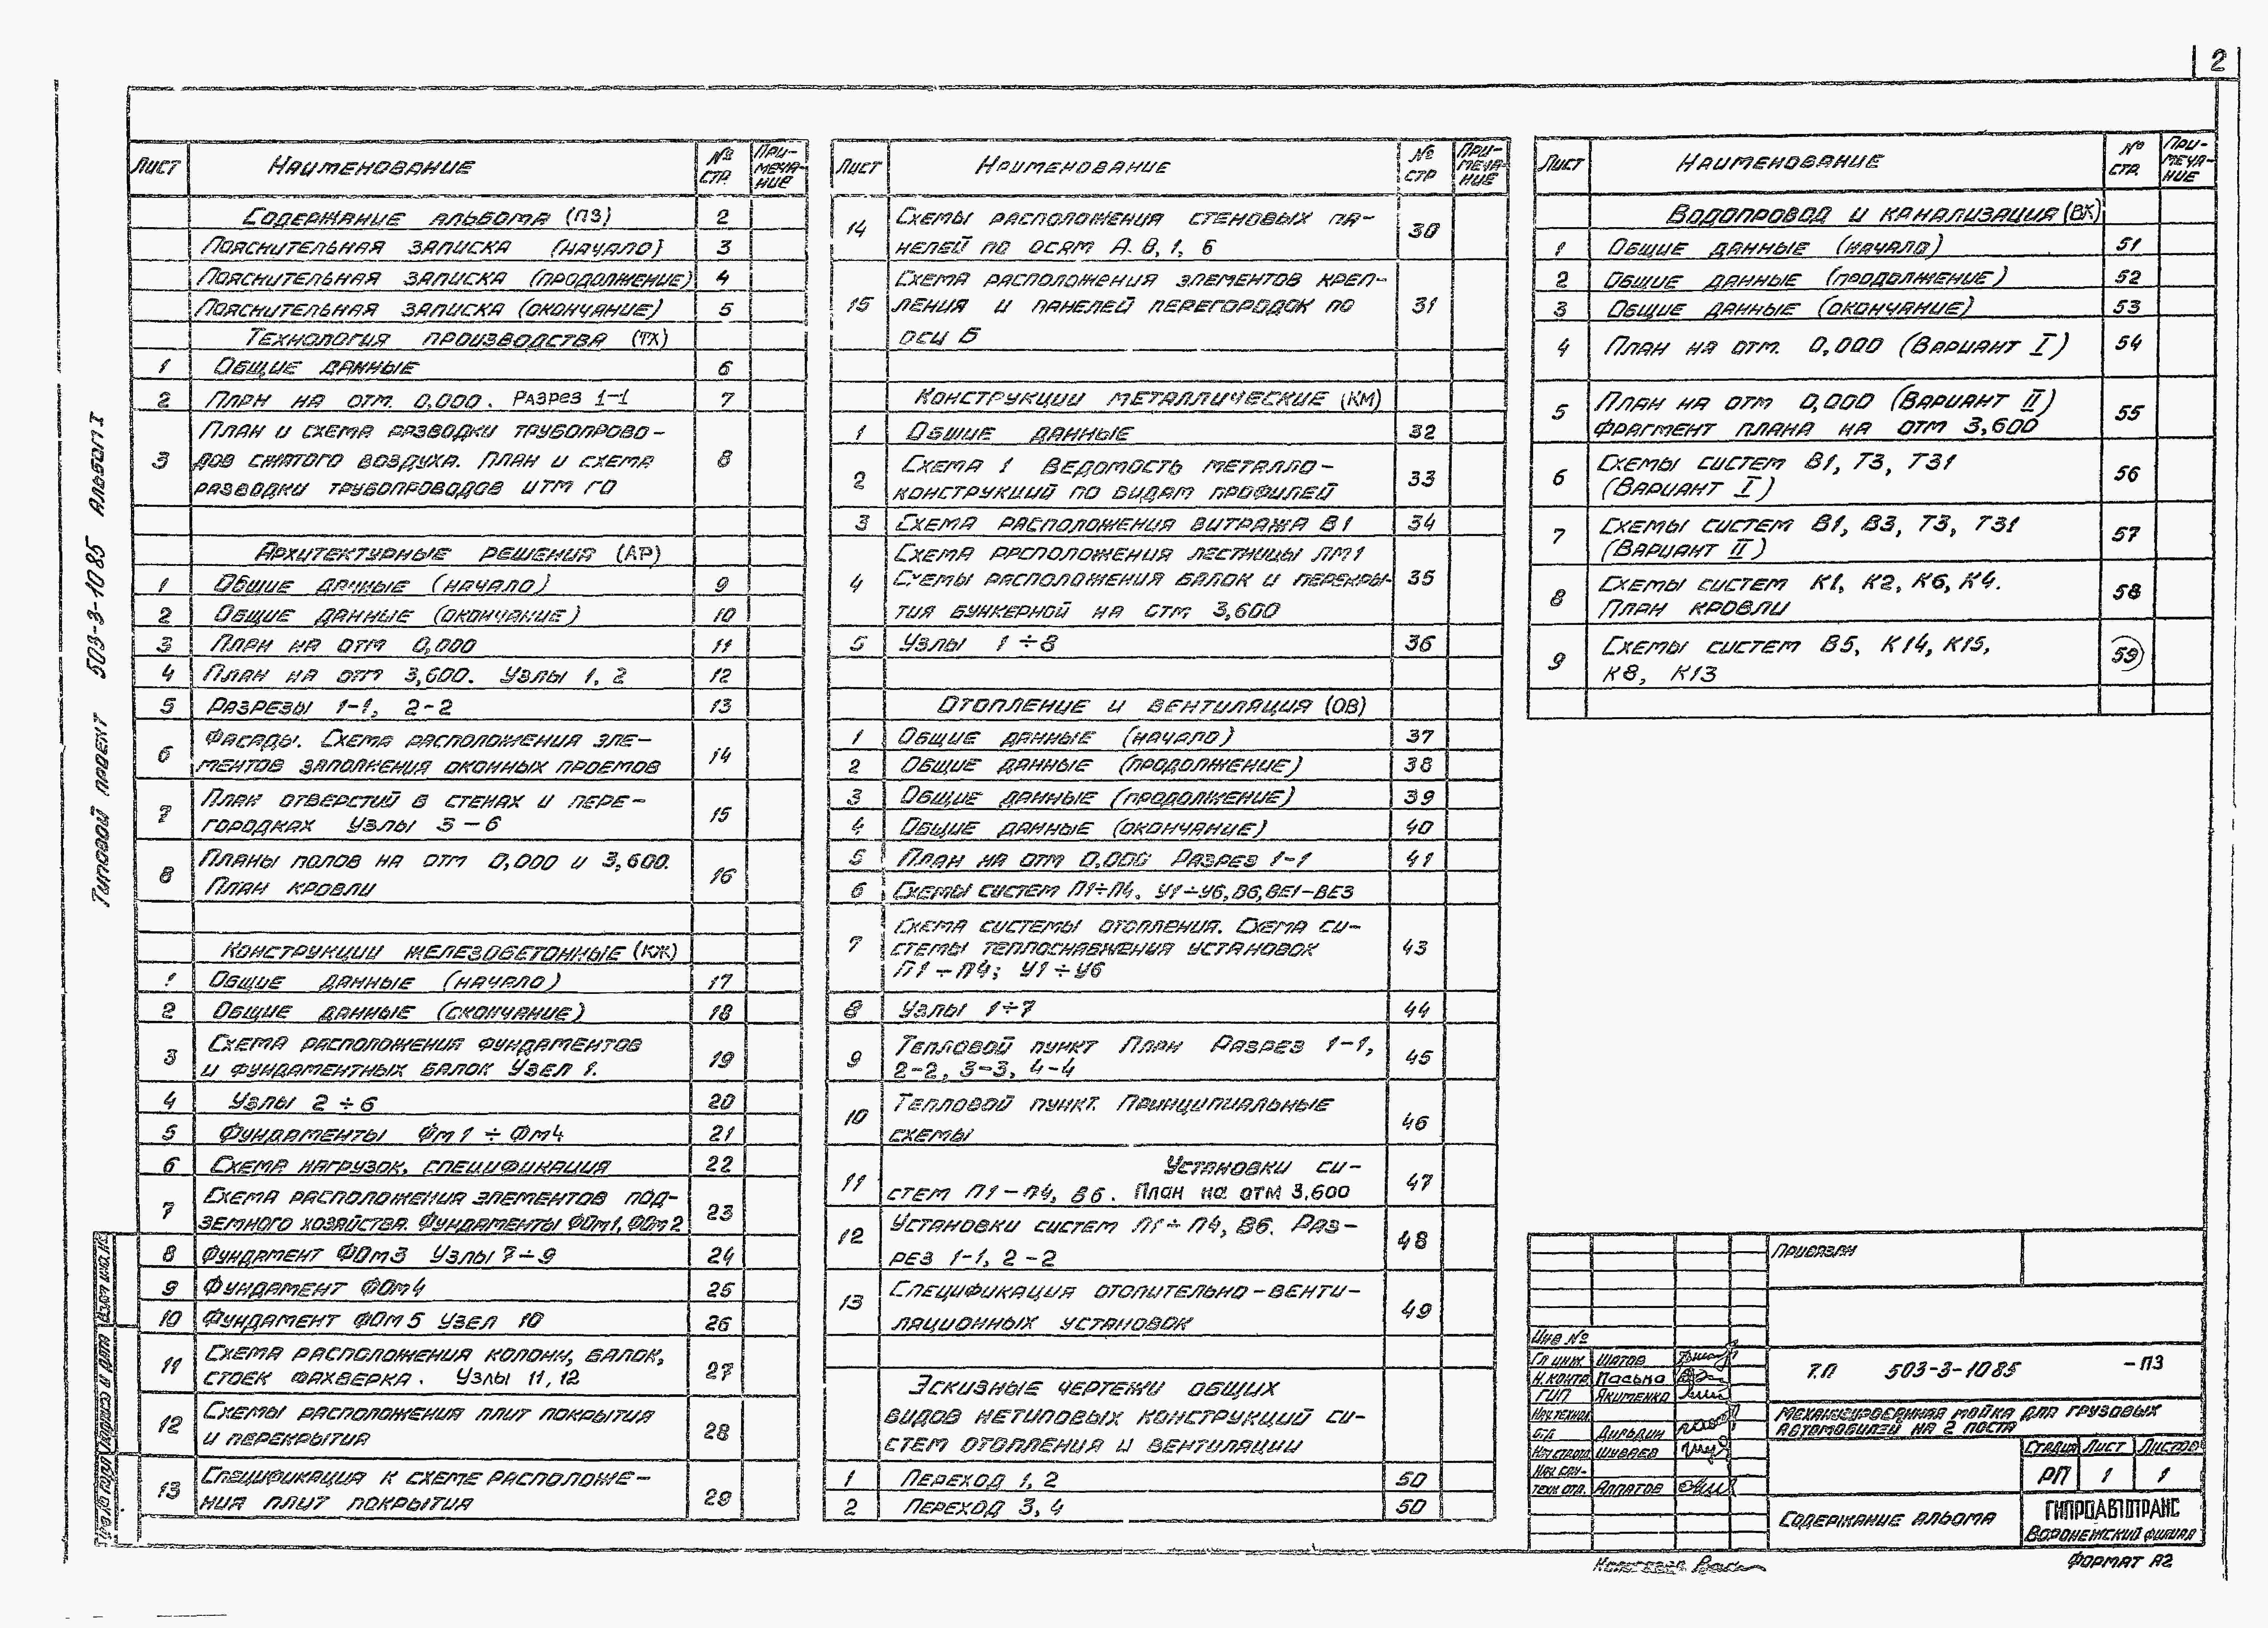 2
Типовой проект 503-3-1085 Альбом I
Лист Наименование № стр. Приме-
чание
Содержание альбома (ПЗ) 2
Пояснительная записка (начало) 3
Пояснительная записка (продолжение) 4
Пояснительная записка (окончание) 5
Технология производства (ТХ)
1 Общие данные 6
2 План на отм. 0,000. Разрез 1-1 7
План и схема разводки трубопрово-
3 дов сжатого воздуха. План и схема 8
разводки трубопроводов ИТМ ГО
Архитектурные решения (АР)
1 Общие данные (начало) 9
2 Общие данные (окончание) 10
3 План на отм 0,000 11
4 План на отм 3,600. Узлы 1, 2 12
5 Разрезы 1-1, 2-2 13
6 Фасады. Схема расположения эле- 14
ментов заполнения оконных проемов
7 План отверстий в стенах и пере- 15
городках Узлы 3-6
8 Планы полов на отм 0,000 и 3,600. 16
План кровли
Конструкции железобетонные (КЖ)
1 Общие данные (начало) 17
2 Общие данные (окончание) 18
3 Схема расположения фундаментов 19
и фундаментных балок Узел 1.
4 Узлы 2÷6 20
5 Фундаменты Фм1 ÷ Фм4 21
6 Схема нагрузок, спецификация 22
7 Схема расположения элементов под- 23
земного хозяйства. Фундаменты ФОм1, ФОм2
8 Фундамент ФОм3 Узлы 7÷9 24
9 Фундамент ФОм4 25
10 Фундамент ФОм5 Узел 10 26
11 Схема расположения колонн, балок, 27
стоек фахверка. Узлы 11, 12
12 Схемы расположения плит покрытия 28
и перекрытия
13 Спецификация к схеме расположе- 29
ния плит покрытия
Лист Наименование № стр При-
меча-
ние
14 Схемы расположения стеновых па- 30
нелей по осям А. В, 1, 6
Схема расположения элементов креп-
15 ления и панелей перегородок по 31
оси Б
Конструкции металлические (КМ)
1 Общие данные 32
2 Схема 1 Ведомость металло- 33
конструкций по видам профилей
3 Схема расположения витража В1 34
Схема расположения лестницы ЛМ1
4 Схемы расположения балок и перекры- 35
тия бункерной на отм 3,600
5 Узлы 1÷8 36
Отопление и вентиляция (ОВ)
1 Общие данные (начало) 37
2 Общие данные (продолжение) 38
3 Общие данные (продолжение) 39
4 Общие данные (окончание) 40
5 План на отм 0,000 Разрез 1-1 41
6 Схемы систем П1÷П4, У1÷У6, В6, ВЕ1-ВЕ3
Схема системы отопления. Схема си-
7 стемы теплоснабжения установок 43
П1÷П4; У1÷У6
8 Узлы 1÷7 44
9 Тепловой пункт План Разрез 1-1, 45
2-2, 3-3, 4-4
10 Тепловой пункт. Принципиальные 46
схемы
11 Установки си- 47
стем П1-П4, В6. План на отм 3.600
12 Установки систем П1÷П4, В6. Раз- 48
рез 1-1, 2-2
13 Спецификация отопительно-венти- 49
ляционных установок
Эскизные чертежи общих
видов нетиповых конструкций си-
стем отопления и вентиляции
1 Переход 1, 2 50
2 Переход 3, 4 50
Лист Наименование № стр. При-
меча-
ние
Водопровод и канализация (ВК)
1 Общие данные (начало) 51
2 Общие данные (продолжение) 52
3 Общие данные (окончание) 53
4 План на отм. 0,000 (Вариант I) 54
5 План на отм 0,000 (Вариант II) 55
Фрагмент плана на отм 3,600
6 Схемы систем В1, Т3, Т31 56
(Вариант I)
7 Схемы систем В1, В3, Т3, Т31 57
(Вариант II)
8 Схемы систем К1, К2, К6, К4. 58
План кровли
9 Схемы систем В5, К14, К15, 59
К8, К13
Привязан
Инв №
Гл инж. Шатов
Н. контр Пасько
ГИП Якименко
Нач. технол.
отд Дильдин
Нач строп Шуваев
Нач. сан-
техн отд. Алпатов
Т.П 503-3-1085 -ПЗ
Механизированная мойка для грузовых
автомобилей на 2 поста
Стадия Лист Листов
РП 1 1
Содержание альбома
ГИПРОАВТОТРАНС
Воронежский филиал
Формат А2